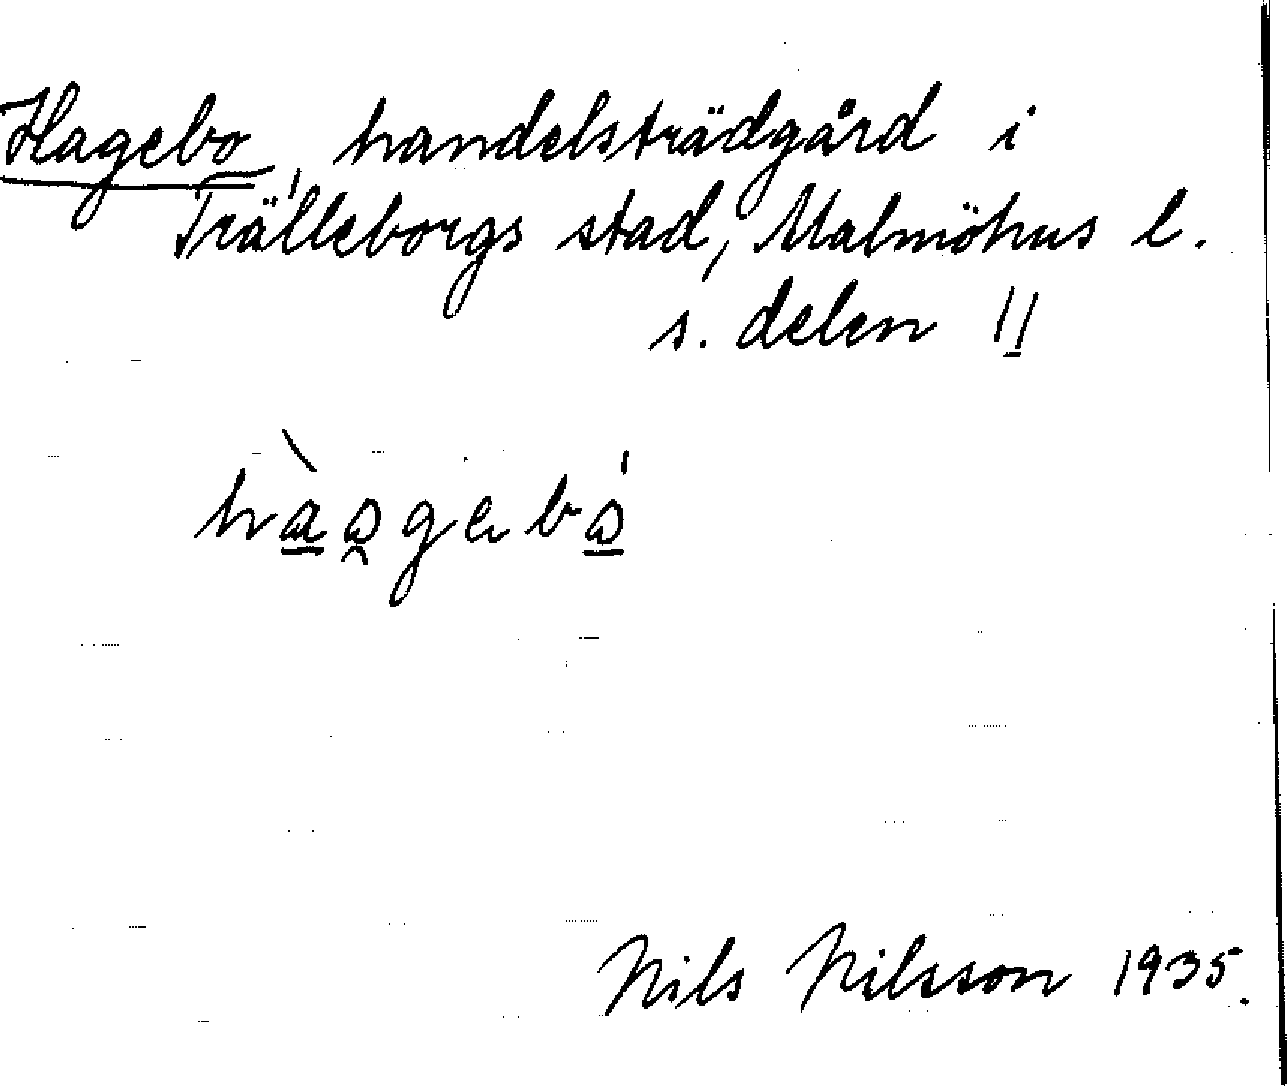 Hagebo, handelsträdgård i
Trälleborgs stad, Malmöhus l.
s. delen 11
Nils Nilsson 1935.